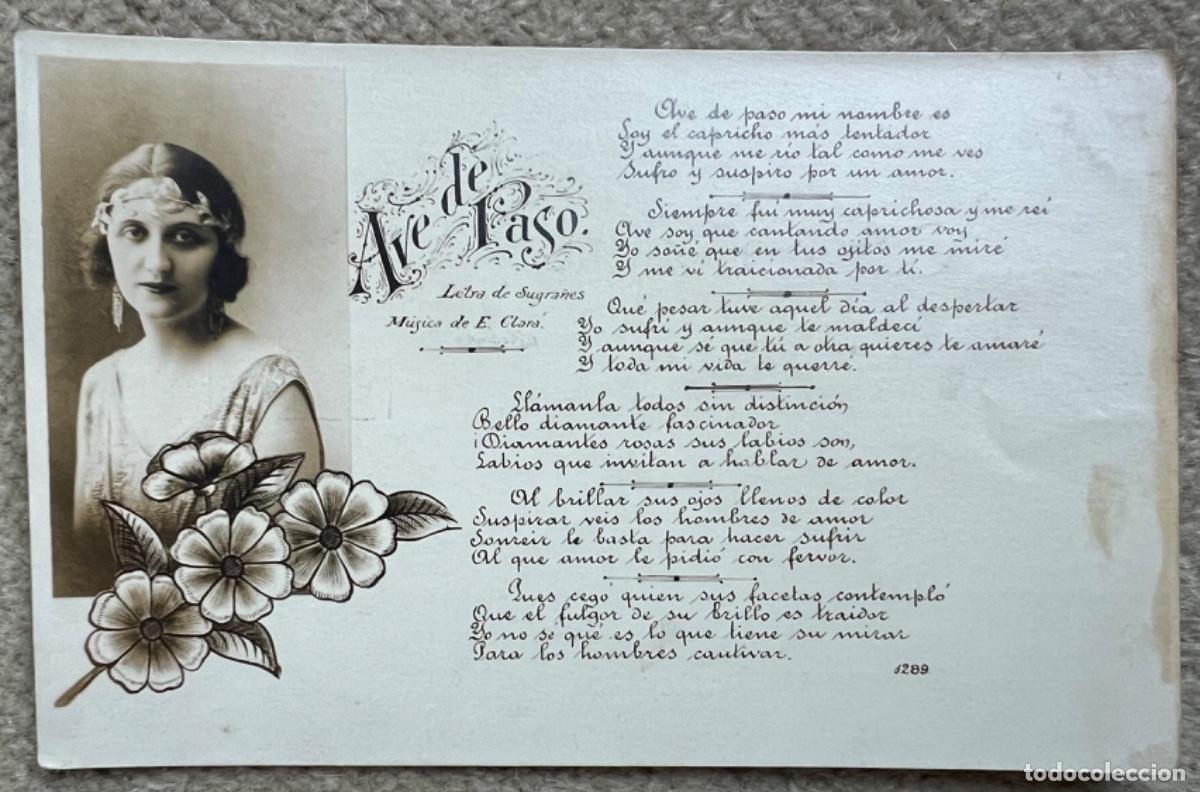 Ave de Paso.
Letra de Sugrañes
Música de E. Clará.
Ave de paso mi nombre es
Soy el capricho más tentador
Y aunque me río tal como me ves
Sufro y suspiro por un amor.
Siempre fuí muy caprichosa y me reí
Ave soy que cantando amor voy
Yo soñé que en tus ojitos me miré
Y me ví traicionada por tí.
Qué pesar tuve aquel día al despertar
Yo sufrí y aunque te maldecí
Y aunque sé que tú a otra quieres te amaré
Y toda mi vida te querré.
Llámanla todos sin distinción,
Bello diamante fascinador
¡Diamantes rosas sus labios son,
Labios que invitan a hablar de amor.
Al brillar sus ojos llenos de color
Suspirar veis los hombres de amor
Sonreir le basta para hacer sufrir
Al que amor le pidió con fervor.
Pues cegó quien sus facetas contempló
Que el fulgor de su brillo es traidor
Yo no se qué es lo que tiene su mirar
Para los hombres cautivar.
1289
todocoleccion